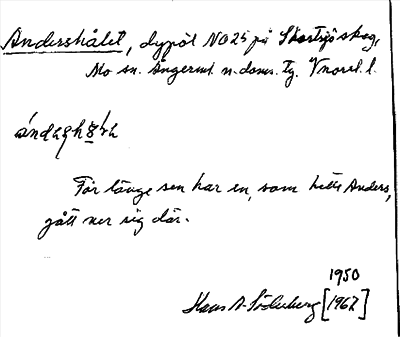 Andershålet, dypöl NO25 på Skortsjöskog,
Mo sn. Ångerml. n. doms. Tg. Vnorrl. l.
För länge sen har en, som hette Anders,
gått ner sig där.
1950
Hans A. Söderberg [1967]